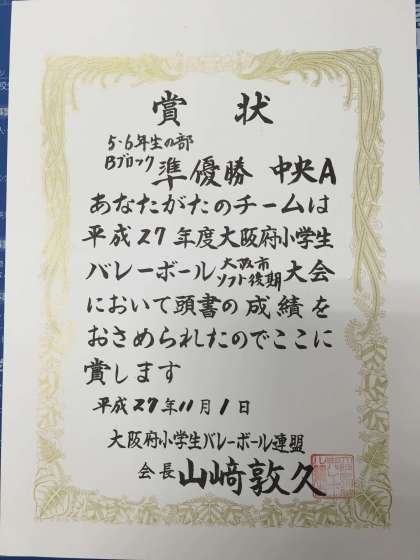 賞状
5・6年生の部
Bブロック 準優勝 中央A
あなたがたのチームは
平成27年度大阪府小学生
バレーボール大阪市ソフト後期大会
において頭書の成績を
おさめられたのでここに
賞します
平成27年11月1日
大阪府小学生バレーボール連盟
会長 山﨑敦久